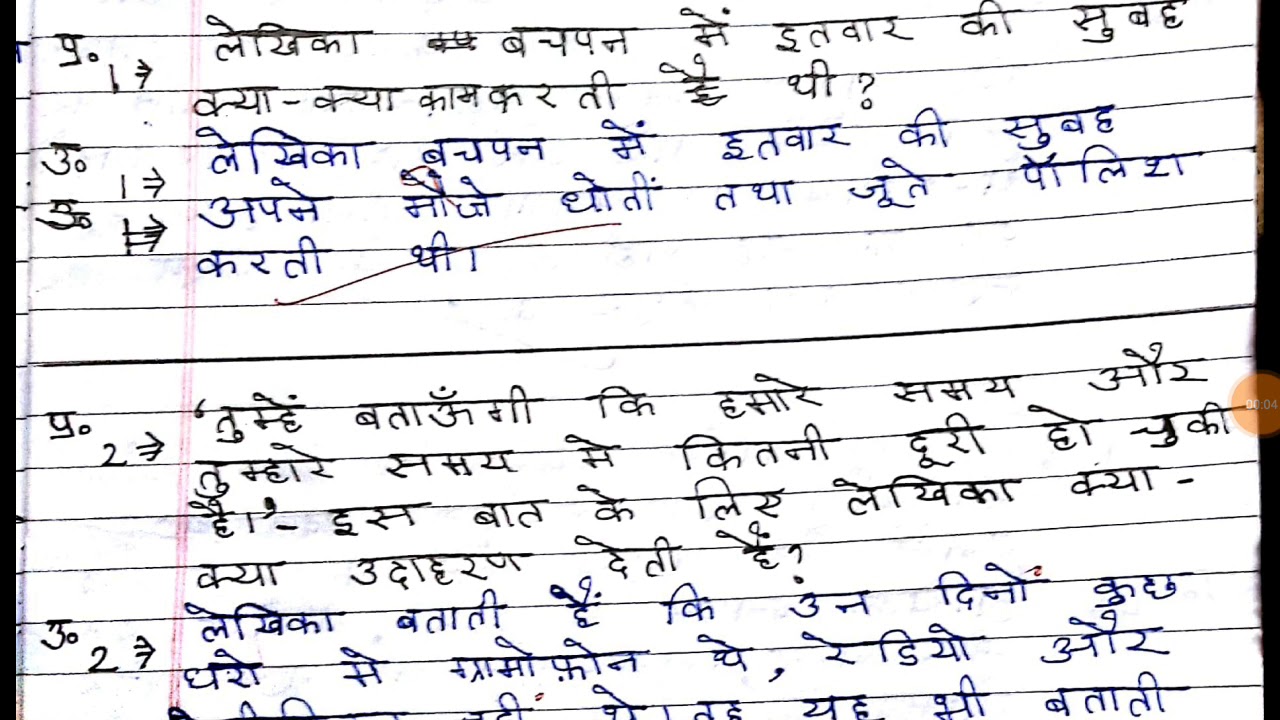 प्र. 1⇒ लेखिका बचपन में इतवार की सुबह
क्या-क्या काम करती है थी?
उ० 1⇒ लेखिका बचपन में इतवार की सुबह
अपने मौजे धोतीं तथा जूते पॉलिश
करती थी।
प्र. 2⇒ 'तुम्हें बताऊँगी कि हमारे समय और
तुम्हारे समय मे कितनी दूरी हो चुकी
है।'- इस बात के लिए लेखिका क्या-
क्या उदाहरण देती हैं?
उ० 2⇒ लेखिका बताती हैं कि उंन दिनों कुछ
घरो मे ग्रामोफ़ोन थे, रेडियो और
नहीं थे। वह यह भी बताती
00:04